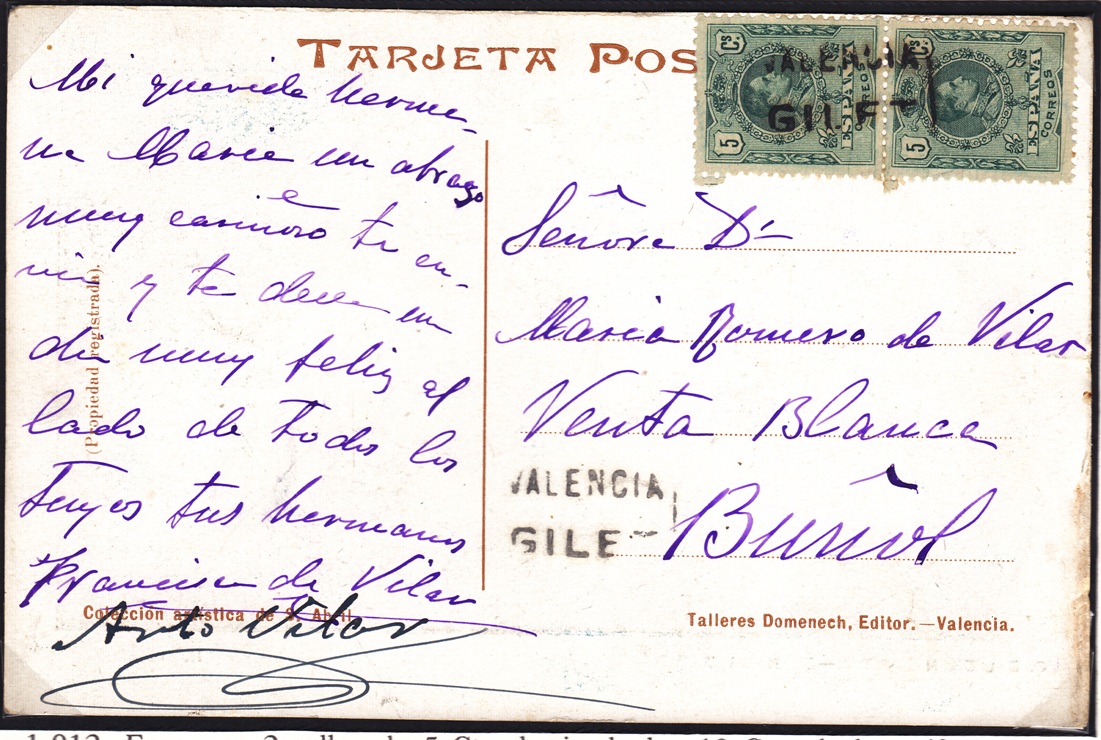 TARJETA POS
Mi querida herma-
na Maria un abrazo
muy cariñoso te en-
via y te desea un
dia muy feliz al
lado de todos los
tuyos tus hermanos
Francisca de Vilar
Anto Vilar
(Propiedad registrada).
Colección artística de S. Abril
5 Cs ESPAÑA CORREOS
5 Cs ESPAÑA CORREOS
VALENCIA
GILET
Señora Dª
Maria Romero de Vilar
Venta Blanca
Buñol
VALENCIA
GILET
Talleres Domenech, Editor.—Valencia.
1.012